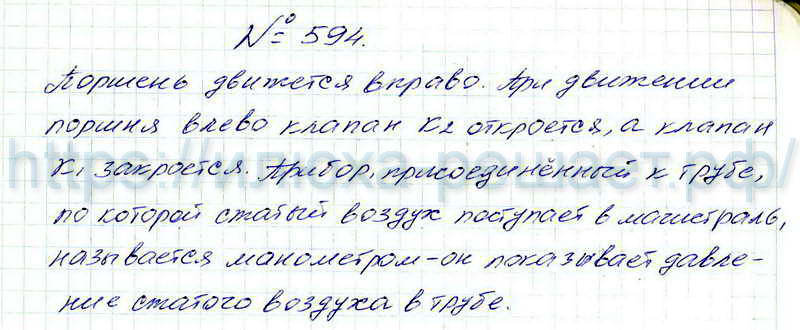 № 594.
Поршень движется вправо. При движении
поршня влево клапан К2 откроется, а клапан
К1 закроется. Прибор, присоединённый к трубе,
по которой сжатый воздух поступает в магистраль,
называется манометром - он показывает давле-
ние сжатого воздуха в трубе.